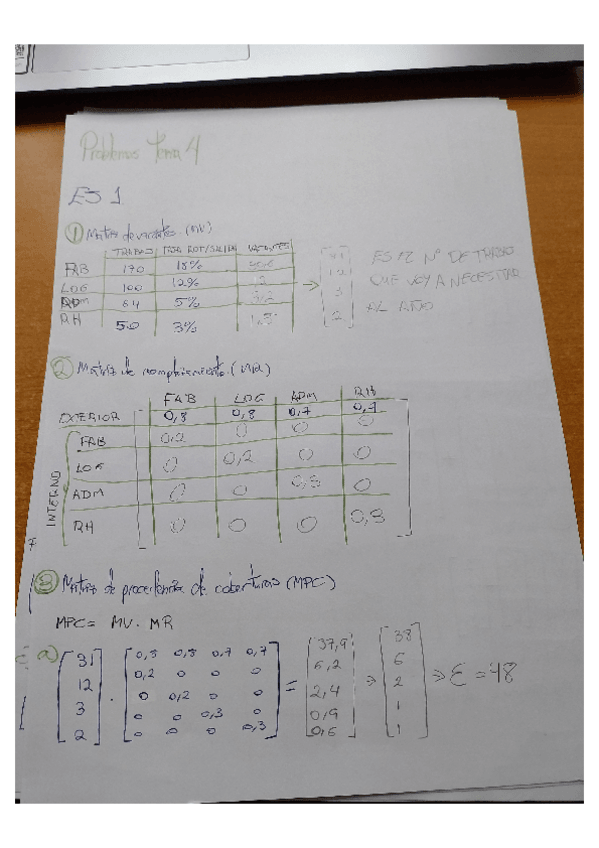 Problemas Tema 4
EJ 1
① Matriz de vacantes (MV)
TRABAJ TASA ROT/SALIDA VACANTES
FAB 170 18%
LOG 100 12% 12
ADM 64 5% 3,2
RH 50 3% 1,5
→ [31 12 3 2] ES EL Nº DE TRABAJ
QUE VOY A NECESITAR
AL AÑO
② Matriz de reemplazamiento (MR)
FAB LOG ADM RH
EXTERIOR 0,8 0,8 0,7 0,7
INTERNO
FAB 0,2 0 0 0
LOG 0 0,2 0 0
ADM 0 0 0,3 0
RH 0 0 0 0,3
③ Matriz de procedencia de coberturas (MPC)
MPC = MV · MR
a)
31 0,8 0,8 0,7 0,7 37,9 38
12 0,2 0 0 0 6,2 6
3 · 0 0,2 0 0 = 2,4 ⇒ 2 ⇒ Σ = 48
2 0 0 0,3 0 0,9 1
0 0 0 0,3 0,6 1